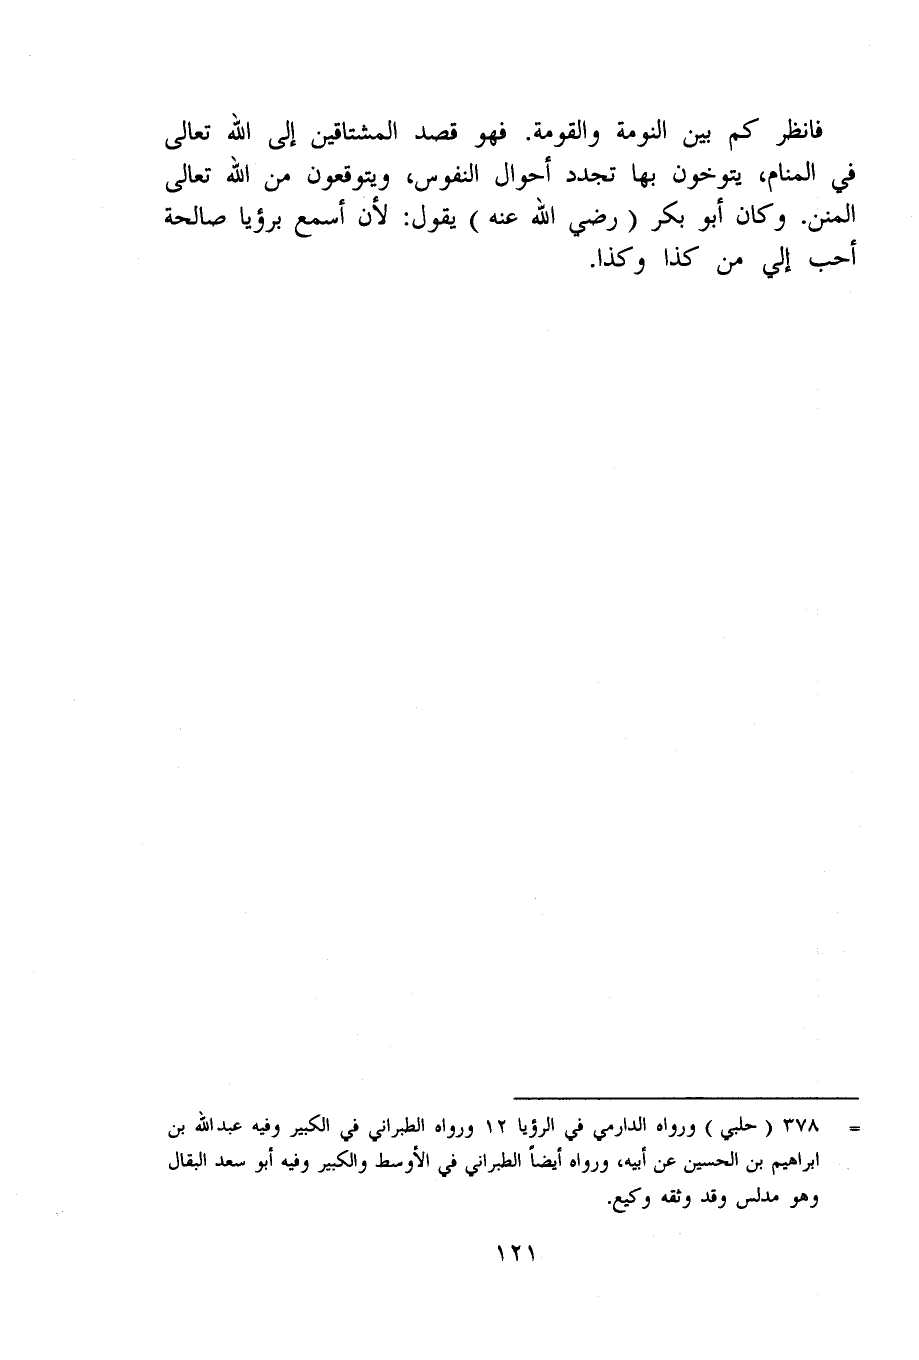 فانظر كم بين النومة والقومة. فهو قصد المشتاقين إلى الله تعالى
في المنام، يتوخون بها تجدد أحوال النفوس، ويتوقعون من الله تعالى
المنن. وكان أبو بكر ( رضي الله عنه ) يقول: لأن أسمع برؤيا صالحة
أحب إلي من كذا وكذا.
= ٣٧٨ ( حلبي ) ورواه الدارمي في الرؤيا ١٢ ورواه الطبراني في الكبير وفيه عبدالله بن
ابراهيم بن الحسين عن أبيه، ورواه أيضاً الطبراني في الأوسط والكبير وفيه أبو سعد البقال
وهو مدلس وقد وثقه وكيع.
١٢١